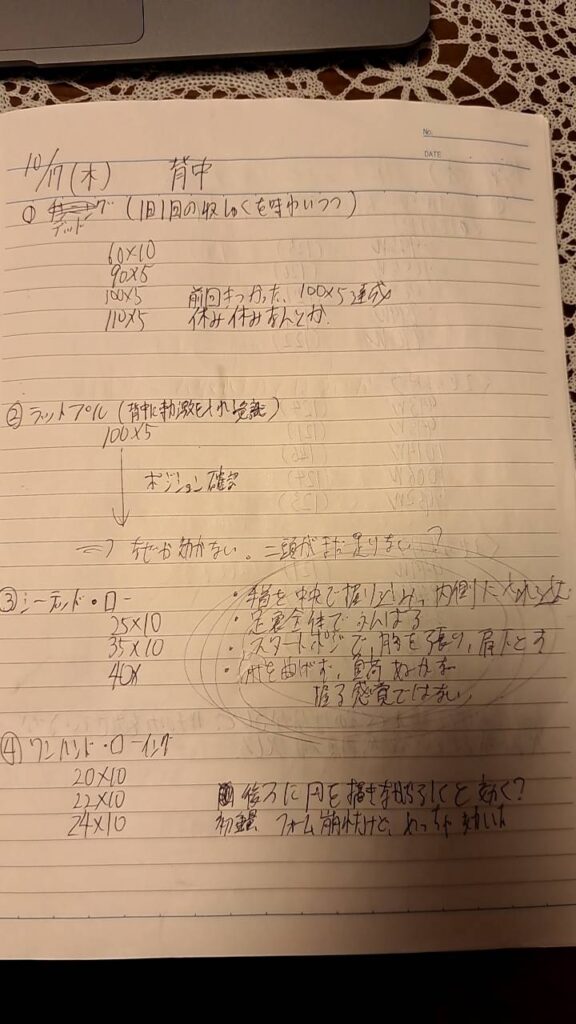 No.
DATE
10/17(木) 背中
① デッド (1回1回の収しゅくを味わいつつ)
60×10
90×5
100×5 前回きつかった、100×5達成
110×5 休み休みなんとか
② ラットプル (背中に刺激を入れる意識)
100×5
ポジション確認
⇒ なぜか効かない。二頭がまだ足りない?
③ シーテッド・ロー ・手首を中央で握り込み、内側に入れる
25×10 ・足裏全体でふんばる
35×10 ・スタートポジで、胸を張り、肩落とす
40× ・肘を曲げず、負荷ぬかな
握る感覚ではない
④ ワンハンド・ローイング
20×10
22×10 後ろに円を描きながら引くと効く?
24×10 初重量 フォーム崩れたけど、めっちゃ効いた